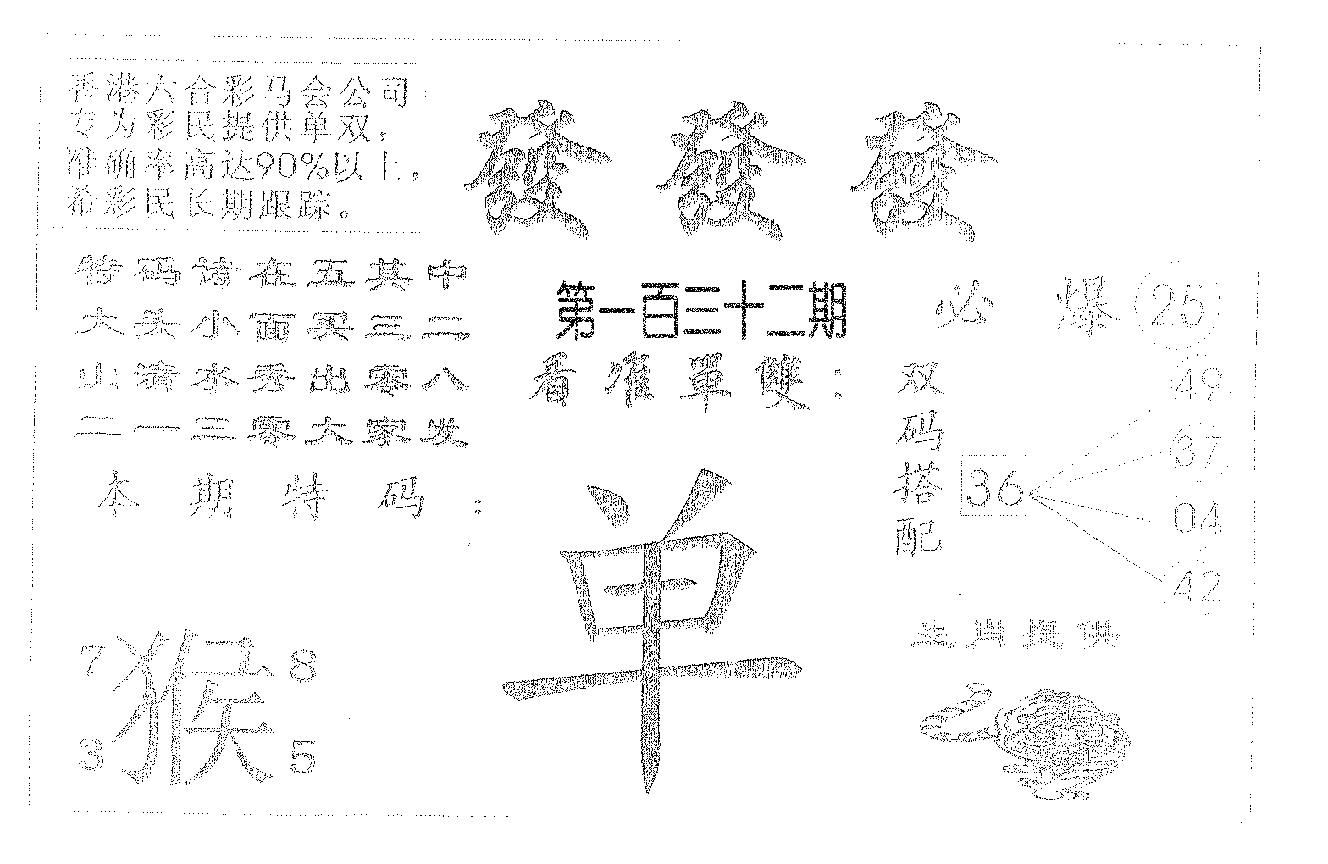 香港六合彩马会公司
专为彩民提供单双,
准确率高达90%以上,
希彩民长期跟踪。
發 發 發
特码诗在五其中
大头小面买三二
山清水秀出零八
二一三零大家发
本期特码:
第一百三十二期
看准單雙:
单
必爆(25)
双码搭配
36
49
37
04
42
7 猴 8
3 5
生肖提供